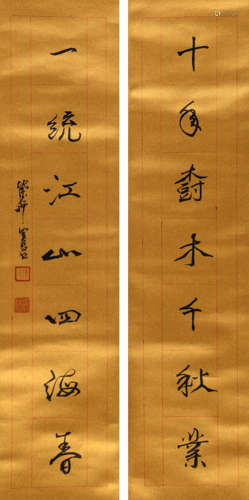 十年樹木千秋業
一統江山四海春